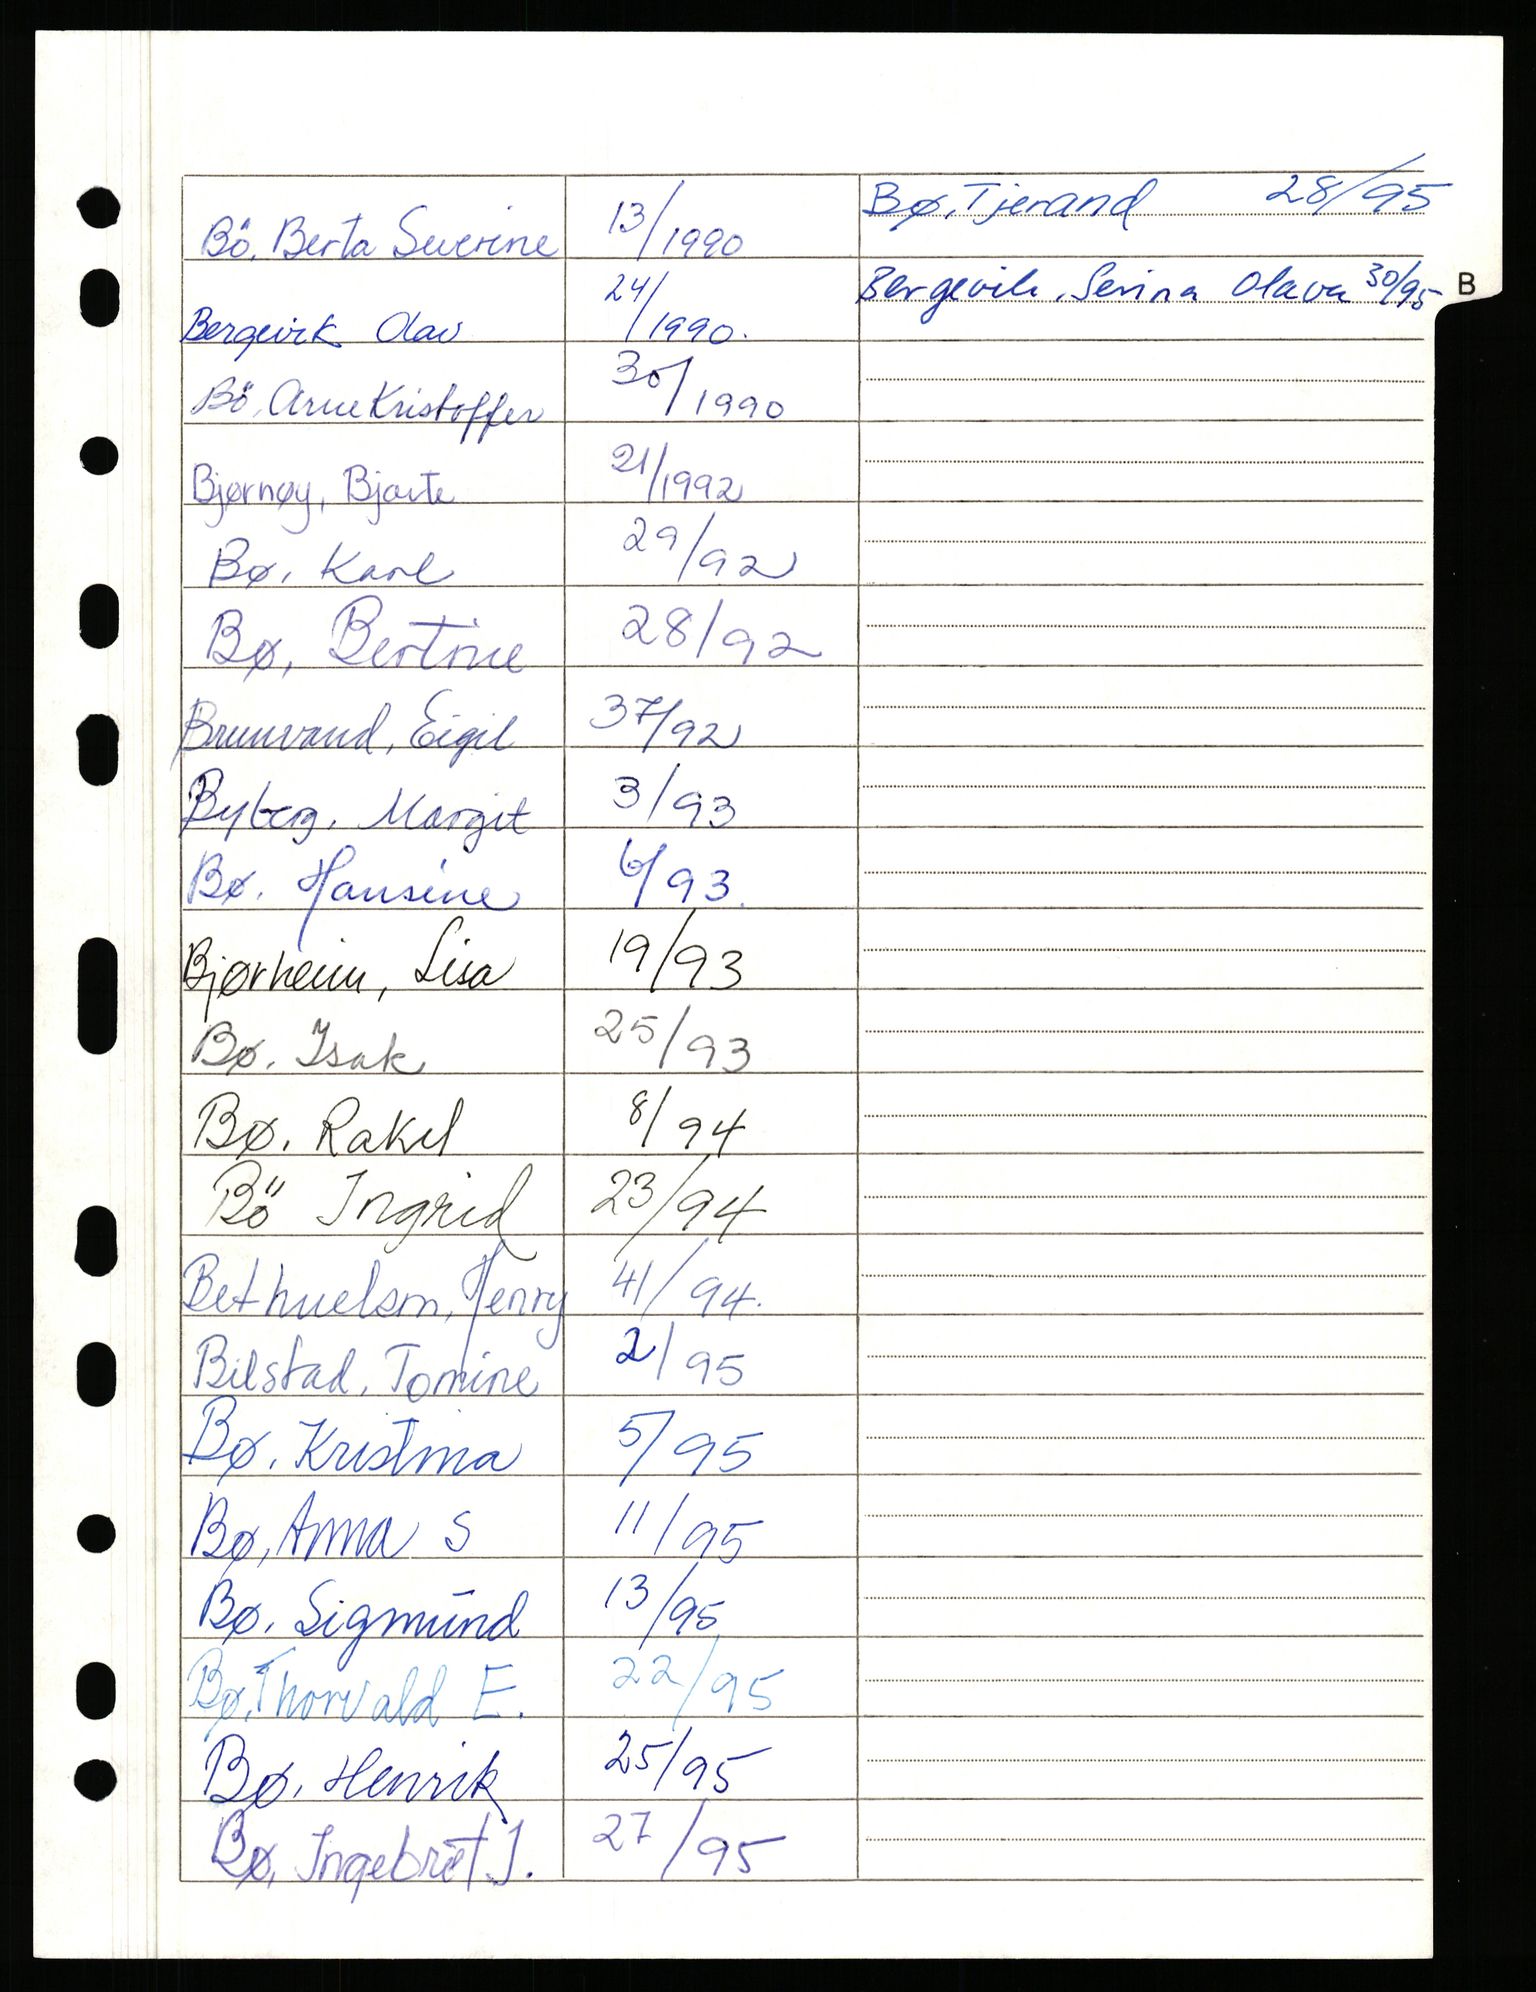 Bö, Berta Severine 13/1990
Bergevik Olav 24/1990.
Bö, Arne Kristoffer 30/1990
Bjørnøy, Bjarte 21/1992
Bø, Karl 29/92
Bø, Bertine 28/92
Brunvand, Eigil 37/92
Byberg, Margit 3/93
Bø, Hansine 6/93.
Bjørheim, Lisa 19/93
Bø, Isak 25/93
Bø, Rakel 8/94
Bö Ingrid 23/94
Bethuelsen, Henry 41/94.
Bilstad, Tomine 2/95
Bø, Kristina 5/95
Bø, Anna S 11/95
Bø, Sigmund 13/95
Bø, Thorvald E. 22/95
Bø, Henrik 25/95
Bø, Ingebret J. 27/95
Bø, Tjerand 28/95
Bergevik, Serina Olava 30/95
B